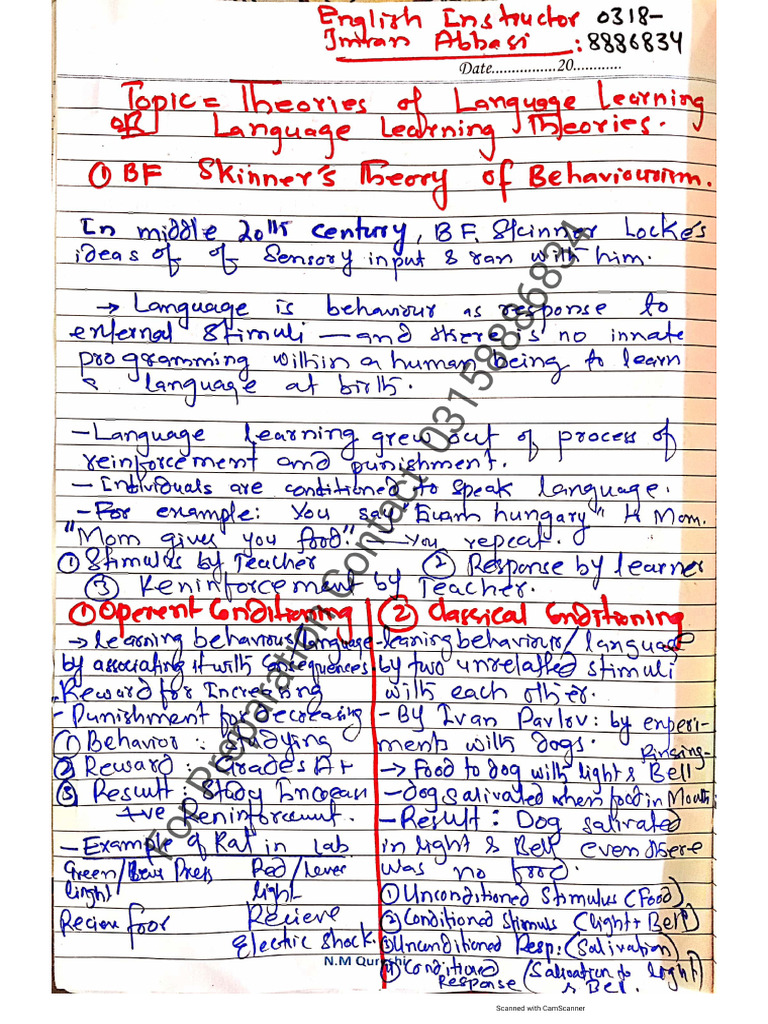 English Instructor 0318-
Imran Abbasi : 8886834
Date................20............
Topic = Theories of Language Learning
OR Language Learning Theories.
① BF Skinner's Theory of Behaviourism.
In middle 20th century, BF. Skinner Locke's
ideas of of Sensory input & ran with him.
→ Language is behaviour as response to
external stimuli — and there is no innate
programming within a human being to learn
& language at birth.
- Language learning grew out of process of
reinforcement and punishment.
- Individuals are conditioned to speak language.
- For example: You say "Euam hungary" Mom.
"Mom gives you food." — You repeat.
① Stimulus by Teacher ② Response by learner
③ Keninforcement by Teacher.
① Operent Conditioning
→ learning behaviour/language
by associating it with Consequences
Reward for Increasing
- Punishment for decreasing
① Behavior : Studying
② Reward : Grades A+
③ Result : Study Increase
+ve Reninforcement.
- Example of Rat in Lab
Green/ Press Red/Lever
light light
Recieve foor Recieve
Electric Shock.
② Classical Conditioning
- learning behaviour/language
by two unrelatted stimuli
with each other.
- By Ivan Pavlov: by experi-
ments with dogs. Ringing-
→ Food to dog with light & Bell
- dog salivated when food in Mouth
- Result : Dog salivated
in light & Bell even there
was no food.
① Unconditioned Stimulus (Food)
② Conditioned Stimus (light + Bell)
③ Unconditioned Resp: (Salivation)
④ Conditioned (Salivation to light
Response & Bell.
N.M Qureshi
For Preparation Contact 03158886834
Scanned with CamScanner